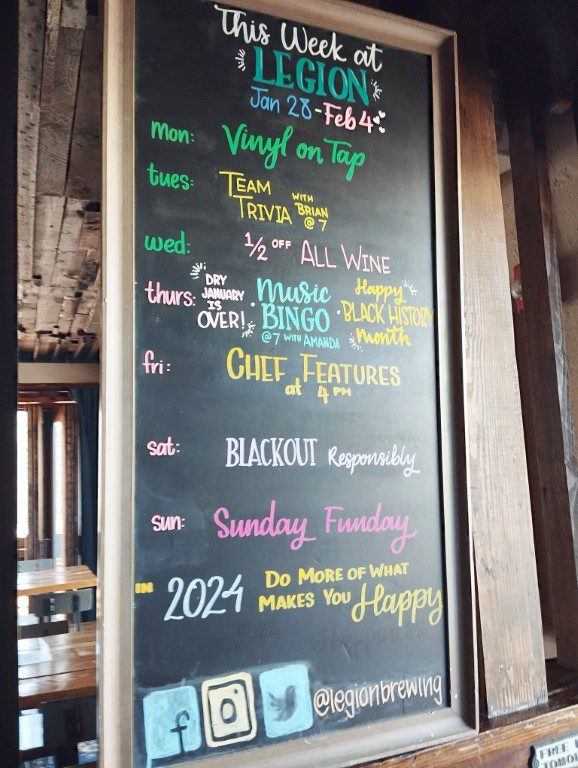 This Week at
LEGION
Jan 28 - Feb 4
mon: Vinyl on Tap
tues: TEAM TRIVIA WITH BRIAN @ 7
wed: 1/2 OFF ALL WINE
thurs: DRY JANUARY IS OVER! · Music BINGO @ 7 WITH AMANDA · Happy BLACK HISTORY Month
fri: CHEF FEATURES
at 4 PM
sat: BLACKOUT Responsibly
sun: Sunday Funday
IN 2024 DO MORE OF WHAT
MAKES YOU Happy
f @legionbrewing
FREE